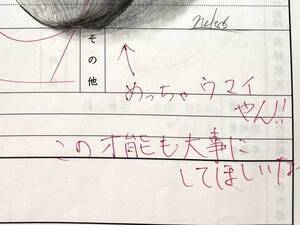 その他
めっちゃウマイ
やん!!
この才能も大事に
してほしいなー